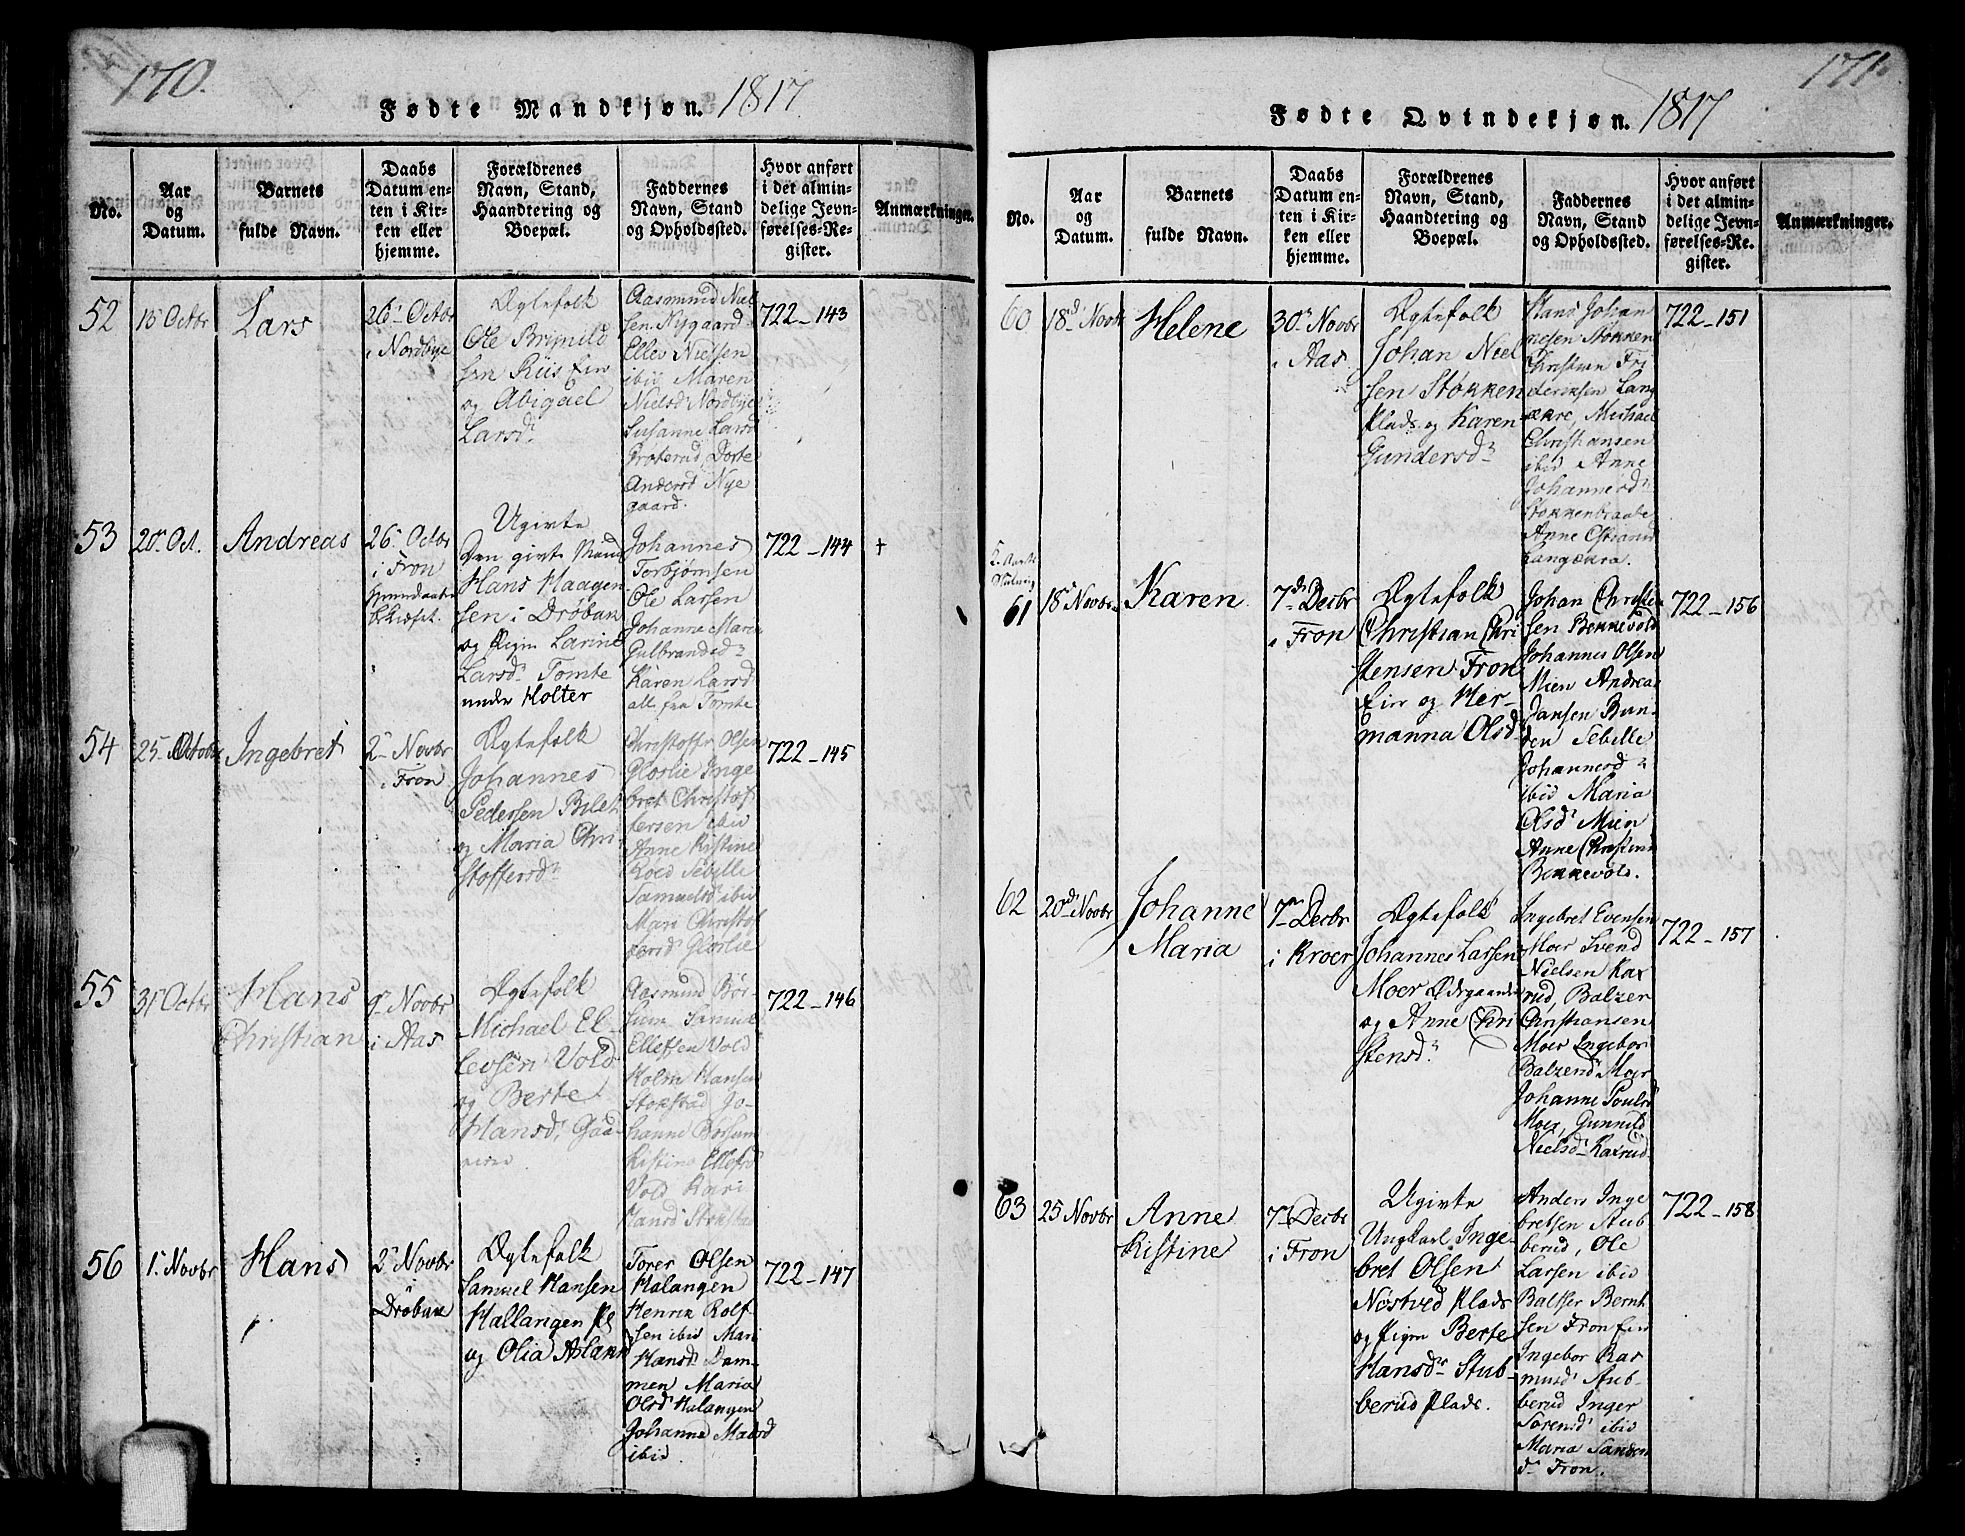 170.
Fødte Mandkjøn. 1817.
No.
Aar
og
Datum.
Barnets
fulde Navn.
Daabs
Datum en-
ten i Kir-
ken eller
hjemme.
Forældrenes
Navn, Stand,
Haandtering og
Boepæl.
Faddernes
Navn, Stand
og Opholdssted.
Hvor anført
i det almin-
delige Jevn-
førelses-Re-
gister.
Anmærkninger.
52
15 Octbr
Lars
26 Octbr
i Nordbye
Ægtefolk
Ole Brynild
sen Riis Eier
og Abigael
Larsd.
Aasmund Niel
sen Nygaard
Ellev Nielsen
ibid Maren
Nielsd Nordbye
Susanne Larsd
Groterud, Dorte
Andersd Nye
gaard.
722-143
53
20 Oct.
Andreas
26 Octbr
i Fron
Ugivte
Den givte Mand
Hans Haagen
sen i Drøbak
og Pigen Larine
Larsd Tomte
under Holter
Johannes
Torbjørnsen
Ole Larsen
Johanne Marie
Gulbrandsd
Karen Larsd
all fra Tomte
722-144
+
54
25 Octobr
Ingebret
2 Novbr
i Fron
Ægtefolk
Johannes
Pedersen Bilet
og Maria Chri
stoffersd
Christoffer Olsen
Gloslie Inge
bret Christof
fersen ibid
Anne Kistine
Roed Sebille
Samuelsd ibid
Mari Christof
fersd Gloslie
722-145
55
31 Octbr
Hans
Christian
9 Novbr
i Aas
Ægtefolk
Michael El-
levsen Vold
og Berte
Hansd,
Aasmund Bör-
sum Samuel
Ellefsen Vold
Holm Hansen
Stokstad Jo-
hanne Borsum
Kistine Ellefsd
Vold Kari
Hansd Stokstad
722-146
56
1 Novbr
Hans
2 Novbr
Drøbak
Ægtefolk
Samuel Hansen
Hallangen Pl
og Olia Aslaksd
Torer Olsen
Halangen
Henrik Rolf
sen ibid Mari
Hansd Dam-
men Maria
Olsd Halangen
Johanne Madsd
ibid
722-147
171
Fødte Qvindekjøn. 1817
No.
Aar
og
Datum.
Barnets
fulde Navn.
Daabs
Datum en-
ten i Kir-
ken eller
hjemme.
Forældrenes
Navn, Stand,
Haandtering og
Boepæl.
Faddernes
Navn, Stand
og Opholdssted.
Hvor anført
i det almin-
delige Jevn-
førelses-Re-
gister.
Anmærkninger.
60
18 Novbr
Helene
30 Novbr
i Aas
Ægtefolk
Johan Niel
sen Støkken
Plads og Karen
Gundersd
Hans Johan
nesen Støkken
Christian Fri
deriksen Lang
ækre, Michael
Christiansen
ibid Anne
Johannesd
Støkkenbraate
Anne Østensd
Langækra.
722-151
61
18 Novbr
Karen
7 Decbr
i Fron
Ægtefolk
Christian Chri
stensen Fron
Eier og Her-
manna Olsd
Johan Christia
sen Bekkevold
Johannes Olsen
Mien Andreas
Jansen Bun-
den Sebille
Johannesd
ibid Maria
Olsd Mien
Anne Christine
Bekkevold.
722-156
62
20 Novbr
Johanne
Maria
7 Decbr
i Kroer
Ægtefolk
Johannes Larsen
Moer Ødegaarden
og Anne Chri
stensd.
Ingebret Evensen
Moer Svend
Nielsen Kax
rud, Balzer
Christiansen
Moer Ingebor
Balzersd Moer
Johanne Poulsd
Moer, Gunnild
Nielsd Kaxrud
722-157
63
25 Novbr
Anne
Kistine
7 Decbr
i Fron
Ugivte
Ungkarl Inge-
bret Olsen
Nøstved Plads
og Pigen Berte
Hansd Stub-
berud Plads.
Anders Inge
bretsen Stub
berud, Ole
Larsen ibid
Baltser Bernt
sen Fron Eier
Ingebor Ras
musd Stub-
berud Inger
Sørensd ibid
Maria Sanden
d Fron.
722-158